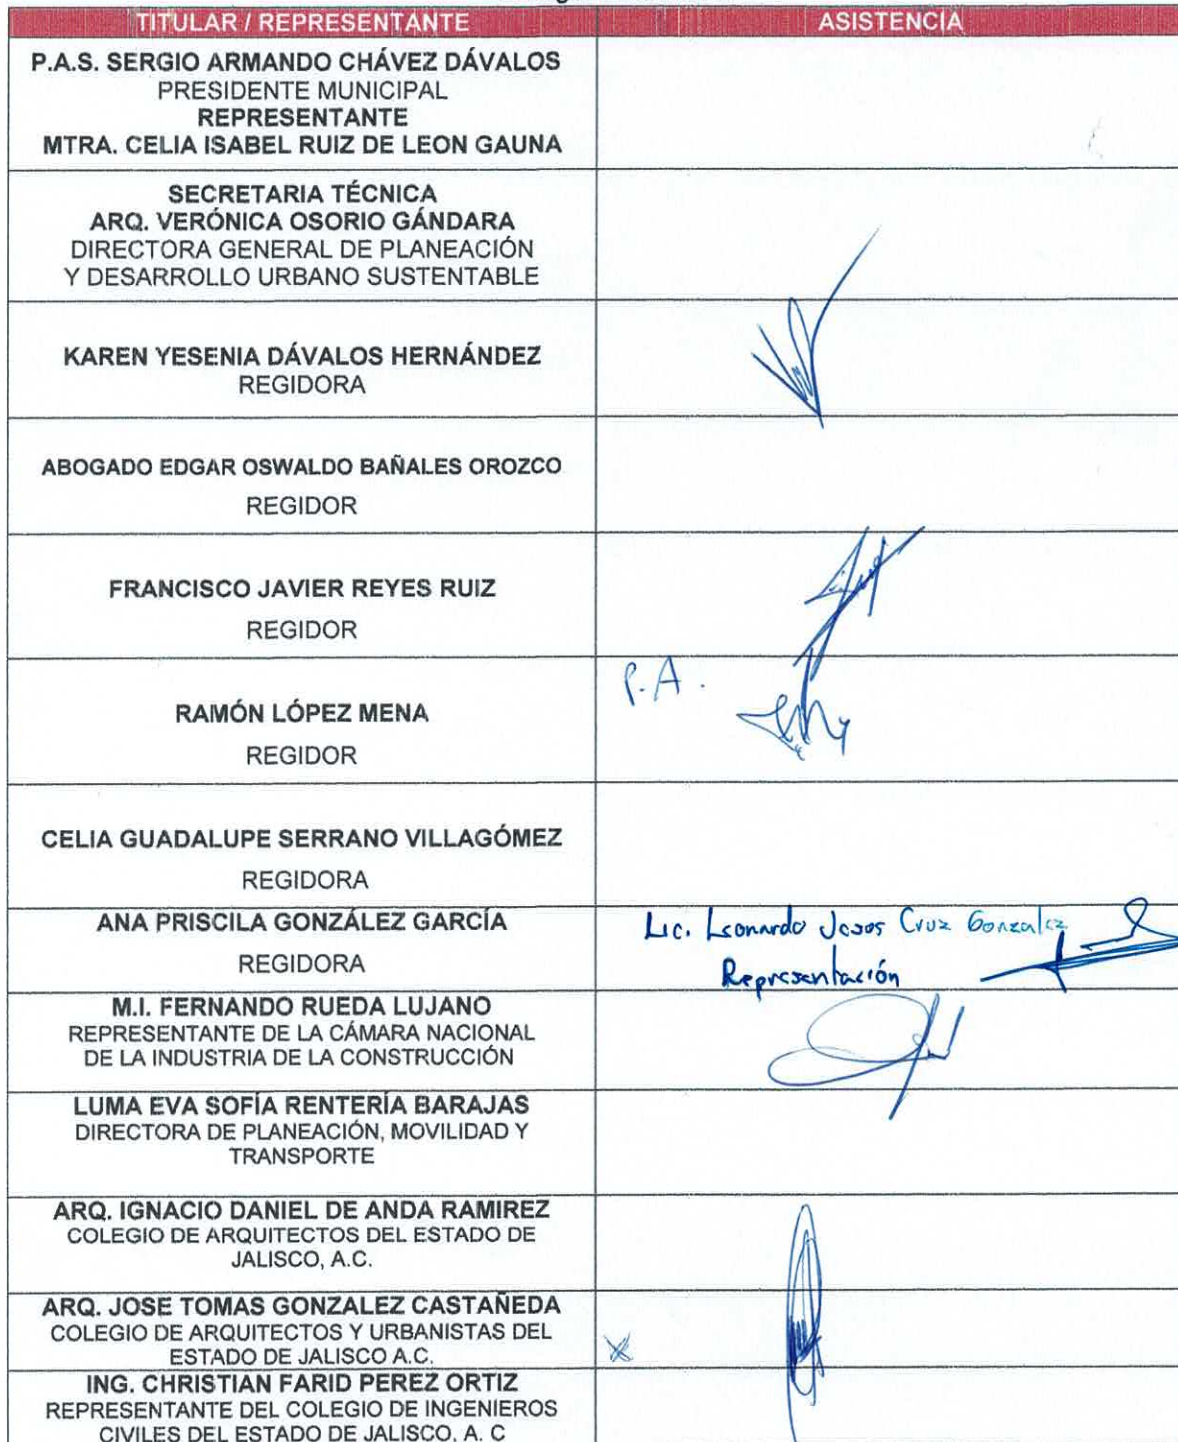 TITULAR / REPRESENTANTE
ASISTENCIA
P.A.S. SERGIO ARMANDO CHÁVEZ DÁVALOS
PRESIDENTE MUNICIPAL
REPRESENTANTE
MTRA. CELIA ISABEL RUIZ DE LEON GAUNA
SECRETARIA TÉCNICA
ARQ. VERÓNICA OSORIO GÁNDARA
DIRECTORA GENERAL DE PLANEACIÓN
Y DESARROLLO URBANO SUSTENTABLE
KAREN YESENIA DÁVALOS HERNÁNDEZ
REGIDORA
ABOGADO EDGAR OSWALDO BAÑALES OROZCO
REGIDOR
FRANCISCO JAVIER REYES RUIZ
REGIDOR
RAMÓN LÓPEZ MENA
REGIDOR
P.A.
CELIA GUADALUPE SERRANO VILLAGÓMEZ
REGIDORA
ANA PRISCILA GONZÁLEZ GARCÍA
REGIDORA
Lic. Leonardo Jesos Cruz Gonzalez
Representación
M.I. FERNANDO RUEDA LUJANO
REPRESENTANTE DE LA CÁMARA NACIONAL
DE LA INDUSTRIA DE LA CONSTRUCCIÓN
LUMA EVA SOFÍA RENTERÍA BARAJAS
DIRECTORA DE PLANEACIÓN, MOVILIDAD Y
TRANSPORTE
ARQ. IGNACIO DANIEL DE ANDA RAMIREZ
COLEGIO DE ARQUITECTOS DEL ESTADO DE
JALISCO, A.C.
ARQ. JOSE TOMAS GONZALEZ CASTAÑEDA
COLEGIO DE ARQUITECTOS Y URBANISTAS DEL
ESTADO DE JALISCO A.C.
ING. CHRISTIAN FARID PEREZ ORTIZ
REPRESENTANTE DEL COLEGIO DE INGENIEROS
CIVILES DEL ESTADO DE JALISCO, A. C